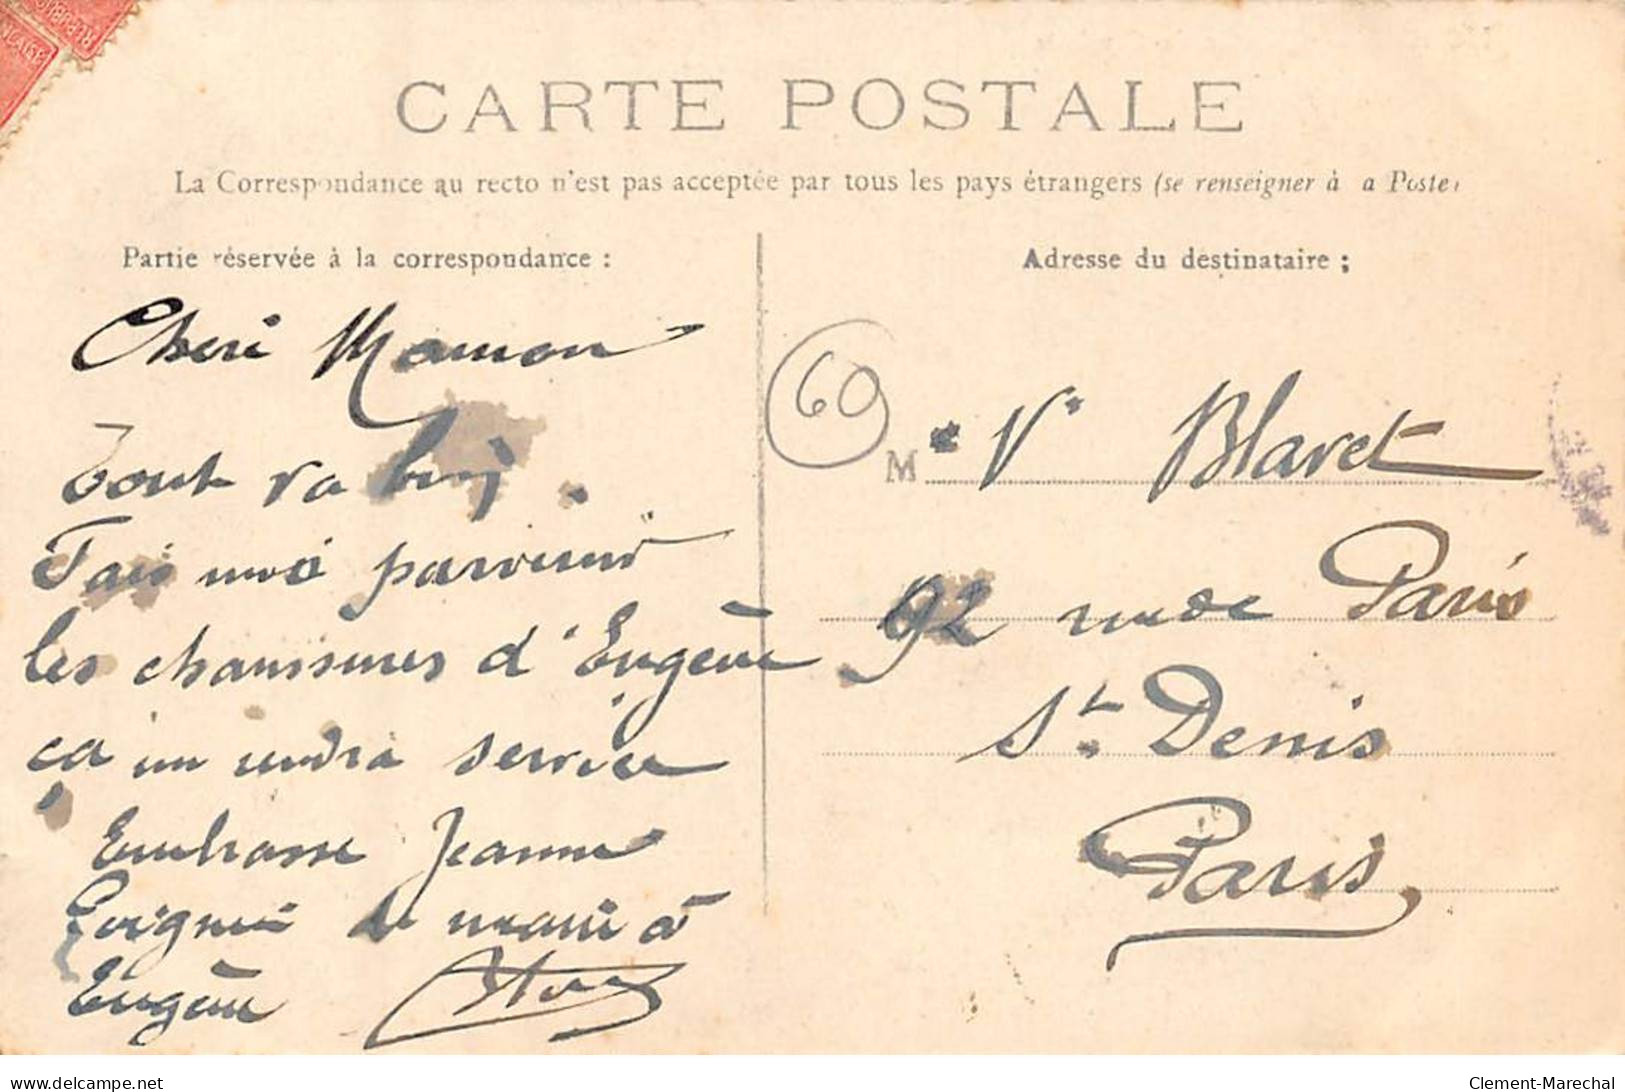 CARTE POSTALE
La Correspondance au recto n'est pas acceptée par tous les pays étrangers (se renseigner à a Poste)
Partie réservée à la correspondance :
Adresse du destinataire ;
Cheri Maman
Tout va bien
Fais moi parvenir
les chaussures d'Eugène
ça me rendra service
Embrasse Jeanne
Poignée de main à
Eugène
60
M e Ve Blaret
92 rue de Paris
St. Denis
Paris
delcampe.net
Clement-Marechal